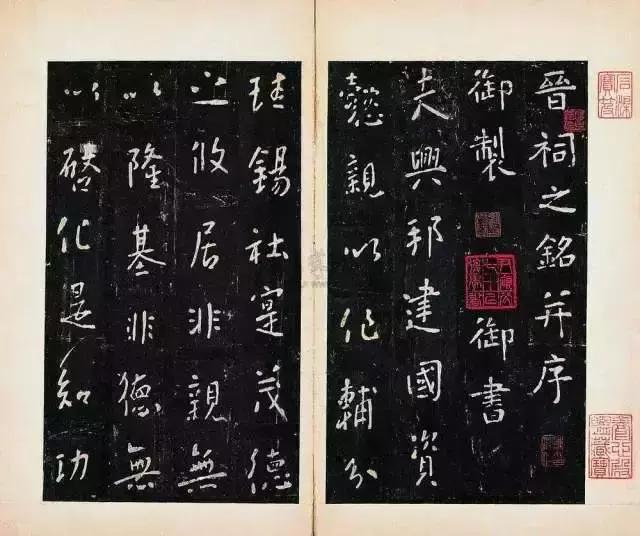 晉祠之銘并序
御製
御書
夫興邦建國資
懿親以作輔分
珪錫社寔茂德
之攸居非親無
以隆基非德無
以啓化是知功